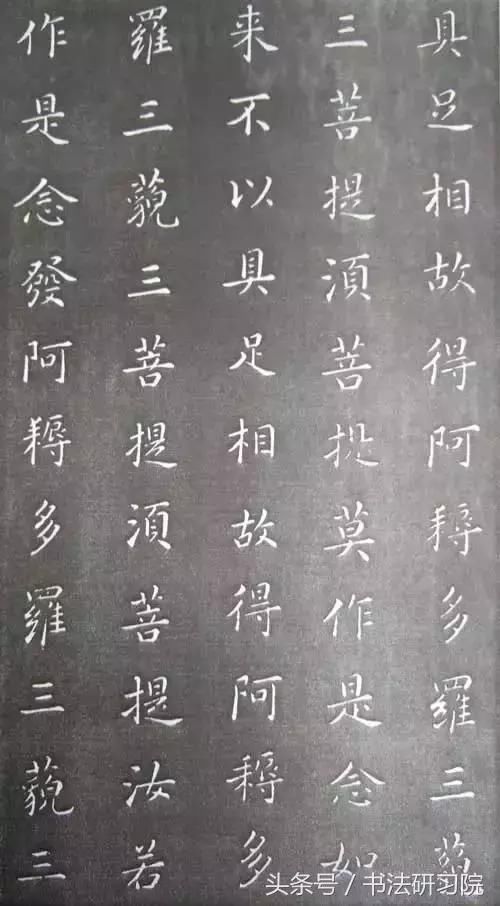 具足相故得阿耨多羅三藐
三菩提湏菩提莫作是念如
来不以具足相故得阿耨多
羅三藐三菩提湏菩提汝若
作是念發阿耨多羅三藐三
头条号 / 书法研习院